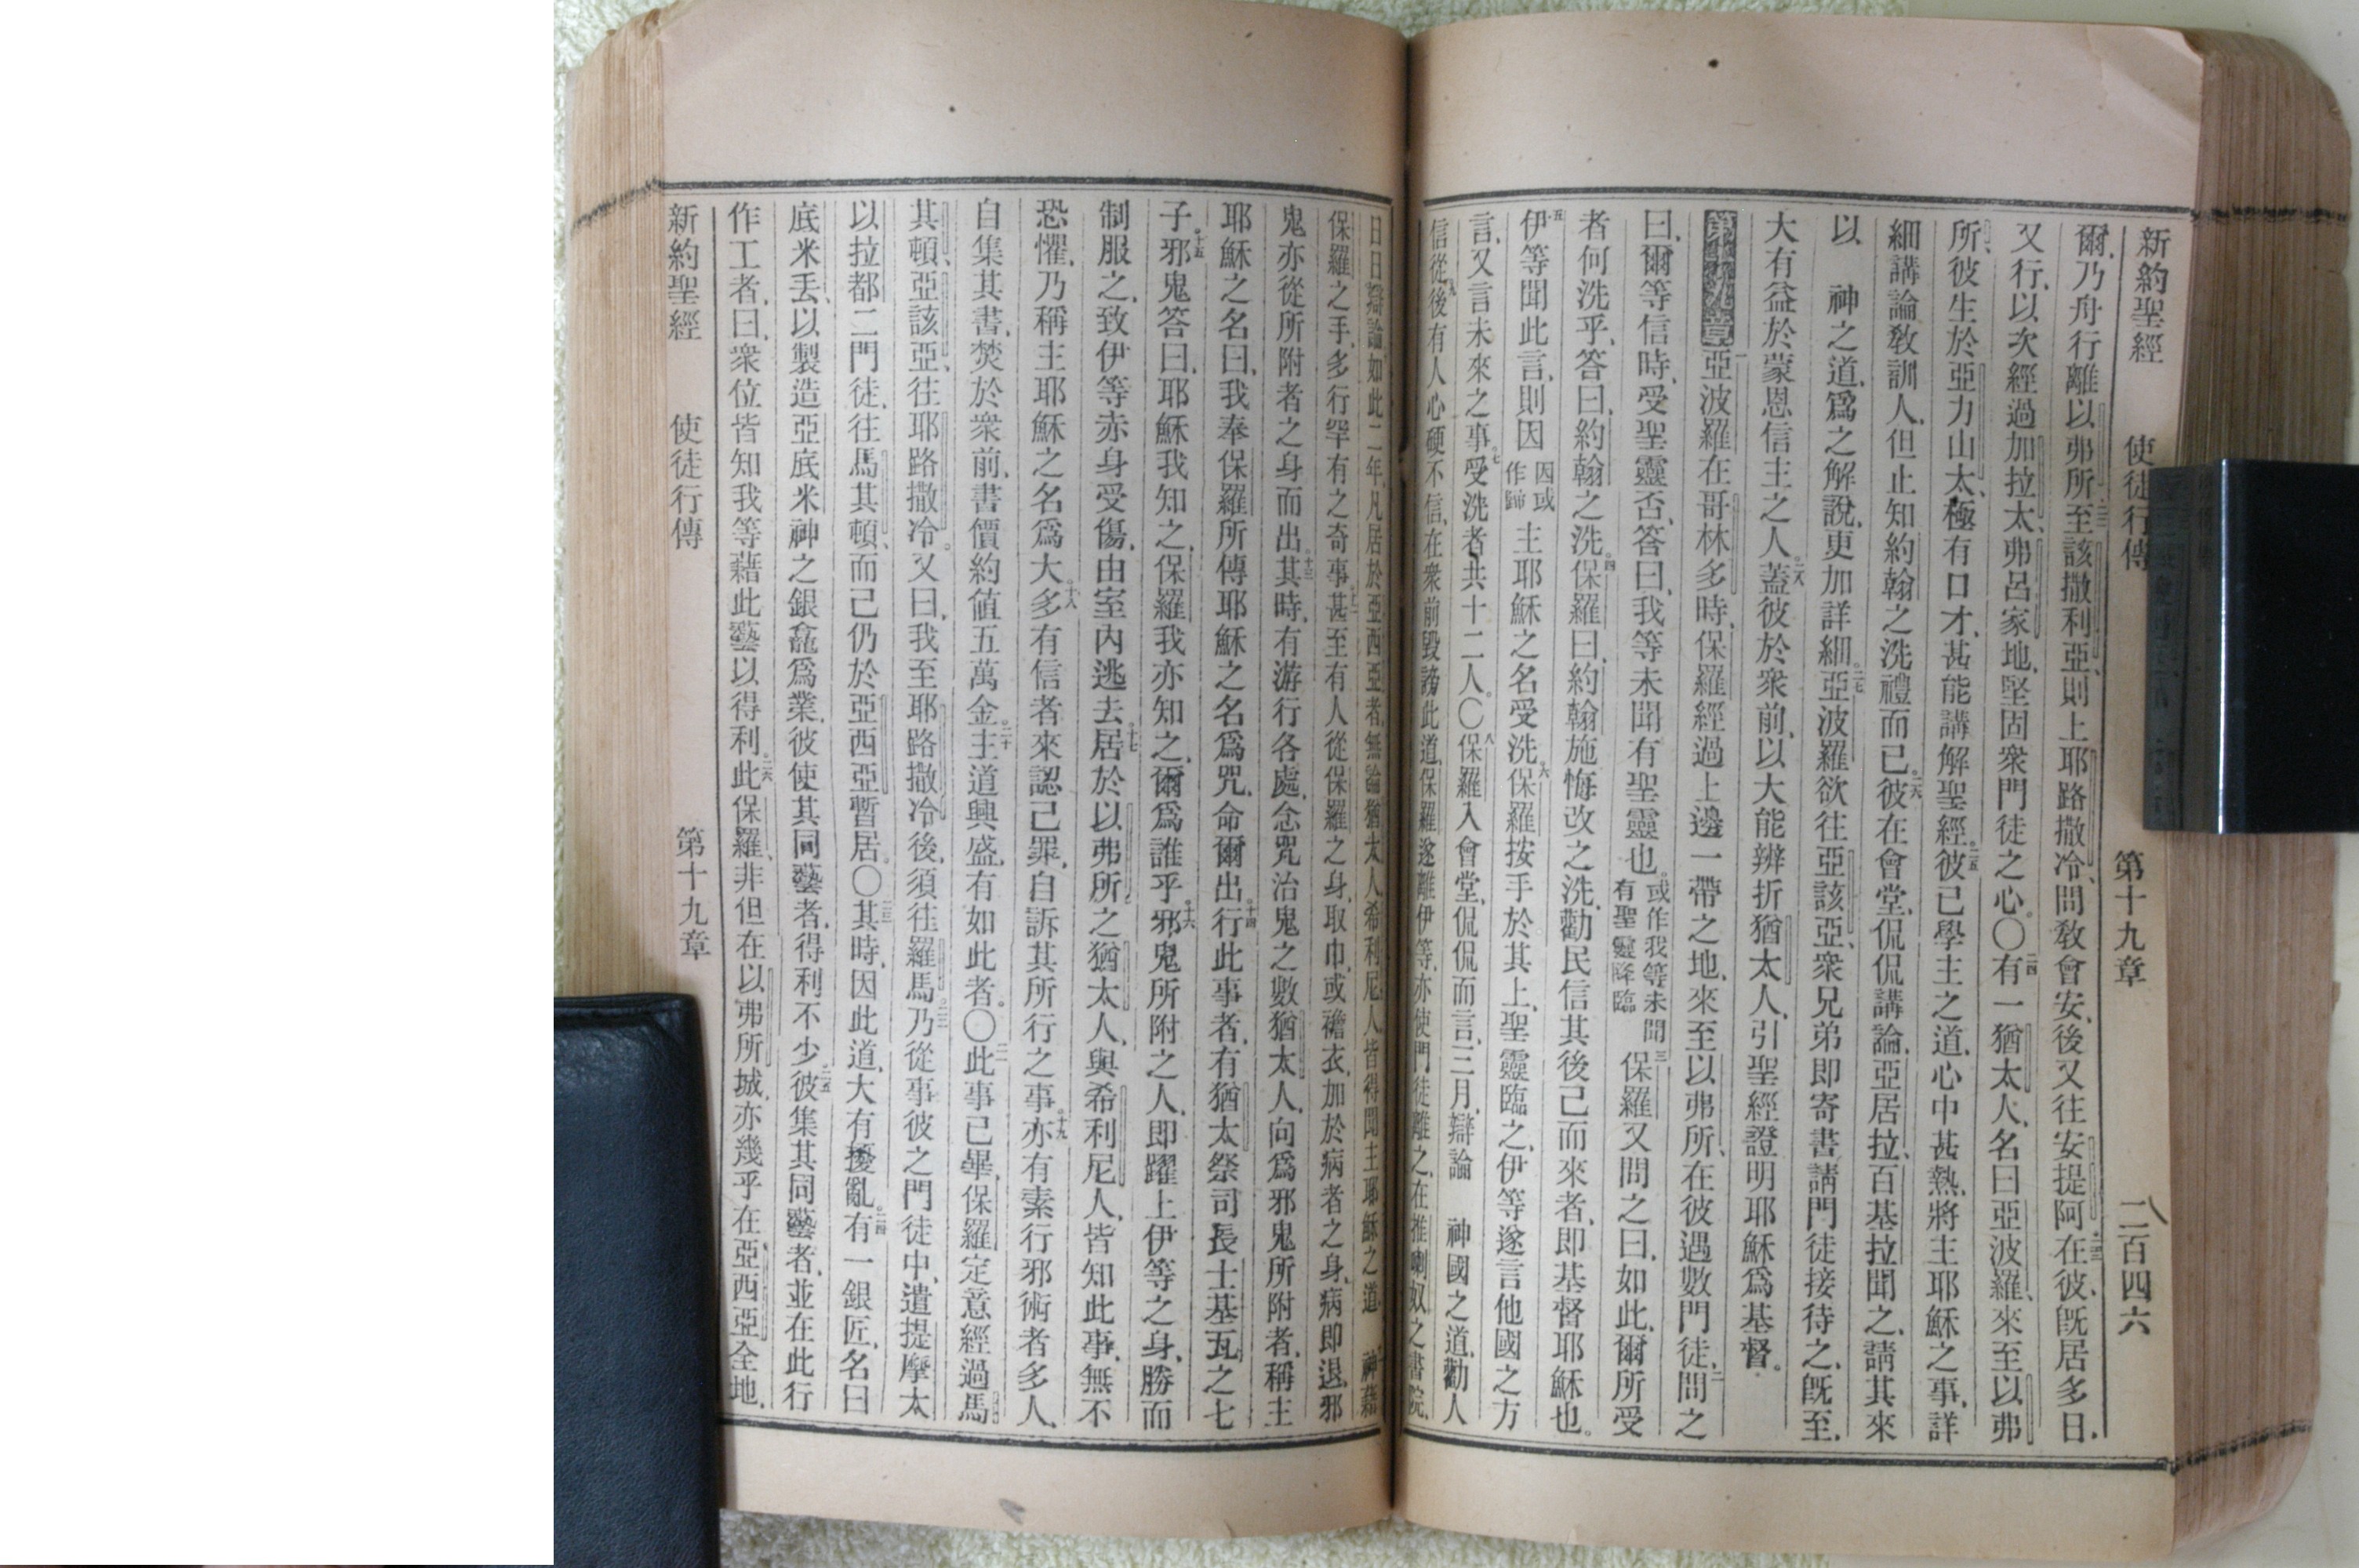 新約聖經 使徒行傳 第十九章 二百四六
爾、乃舟行離以弗所、至該撒利亞、則上耶路撒冷、問教會安、後又往安提阿、在彼、旣居多日、
又行、以次經過加拉太、弗呂家地、堅固衆門徒之心。〇有一猶太人、名曰亞波羅、來至以弗
所、彼生於亞力山太、極有口才、甚能講解聖經。彼已學主之道、心中甚熱、將主耶穌之事、詳
細講論教訓人、但止知約翰之洗禮而已。彼在會堂、侃侃講論、亞居拉、百基拉聞之、請其來
以 神之道、爲之解說、更加詳細。亞波羅欲往亞該亞、衆兄弟卽寄書請門徒接待之、旣至、
大有益於蒙恩信主之人。蓋彼於衆前、以大能辨折猶太人、引聖經證明耶穌爲基督。
第十九章 一亞波羅在哥林多時、保羅經過上邊一帶之地、來至以弗所、在彼遇數門徒、二問之
曰、爾等信時、受聖靈否、答曰、我等未聞有聖靈也。或作我等未聞有聖靈降臨 三保羅又問之曰、如此、爾所受
者何洗乎、答曰、約翰之洗。四保羅曰、約翰施悔改之洗、勸民信其後己而來者、卽基督耶穌也。
五伊等聞此言、則因因或作歸主耶穌之名受洗。六保羅按手於其上、聖靈臨之、伊等遂言他國之方
言、又言未來之事。七受洗者共十二人。〇八保羅入會堂、侃侃而言、三月、辯論 神國之道、勸人
信從、九後有人心硬不信、在衆前毀謗此道、保羅遂離伊等、亦使門徒離之、在推喇奴之書院、
日日辯論、如此二年、凡居於亞西亞者、無論猶太人希利尼人、皆得聞主耶穌之道、 神藉
保羅之手、多行罕有之奇事、甚至有人從保羅之身、取巾、或襜衣、加於病者之身、病卽退、邪
鬼亦從所附者之身而出。十三其時、有游行各處、念咒治鬼之數猶太人、向爲邪鬼所附者、稱主
耶穌之名曰、我奉保羅所傳耶穌之名爲咒、命爾出。十四行此事者、有猶太祭司長士基瓦之七
子。十五邪鬼答曰、耶穌我知之、保羅我亦知之、爾爲誰乎。十六邪鬼所附之人、卽躍上伊等之身、勝而
制服之、致伊等赤身受傷、由室內逃去。十七居於以弗所之猶太人、與希利尼人、皆知此事、無不
恐懼、乃稱主耶穌之名爲大。十八多有信者來認己罪、自訴其所行之事。十九亦有素行邪術者多人、
自集其書、焚於衆前、書價約値五萬金。二十主道興盛、有如此者。〇二一此事已畢、保羅定意經過馬
其頓、亞該亞、往耶路撒冷。又曰、我至耶路撒冷後、須往羅馬。二二乃從事彼之門徒中、遣提摩太
以拉都二門徒、往馬其頓、而己仍於亞西亞暫居。〇二三其時、因此道、大有擾亂。二四有一銀匠、名曰
底米丟、以製造亞底米神之銀龕爲業、彼使其同藝者、得利不少。二五彼集其同藝者、並在此行
作工者、曰、衆位皆知我等藉此藝以得利。二六此保羅、非但在以弗所城、亦幾乎在亞西亞全地、
新約聖經 使徒行傳 第十九章